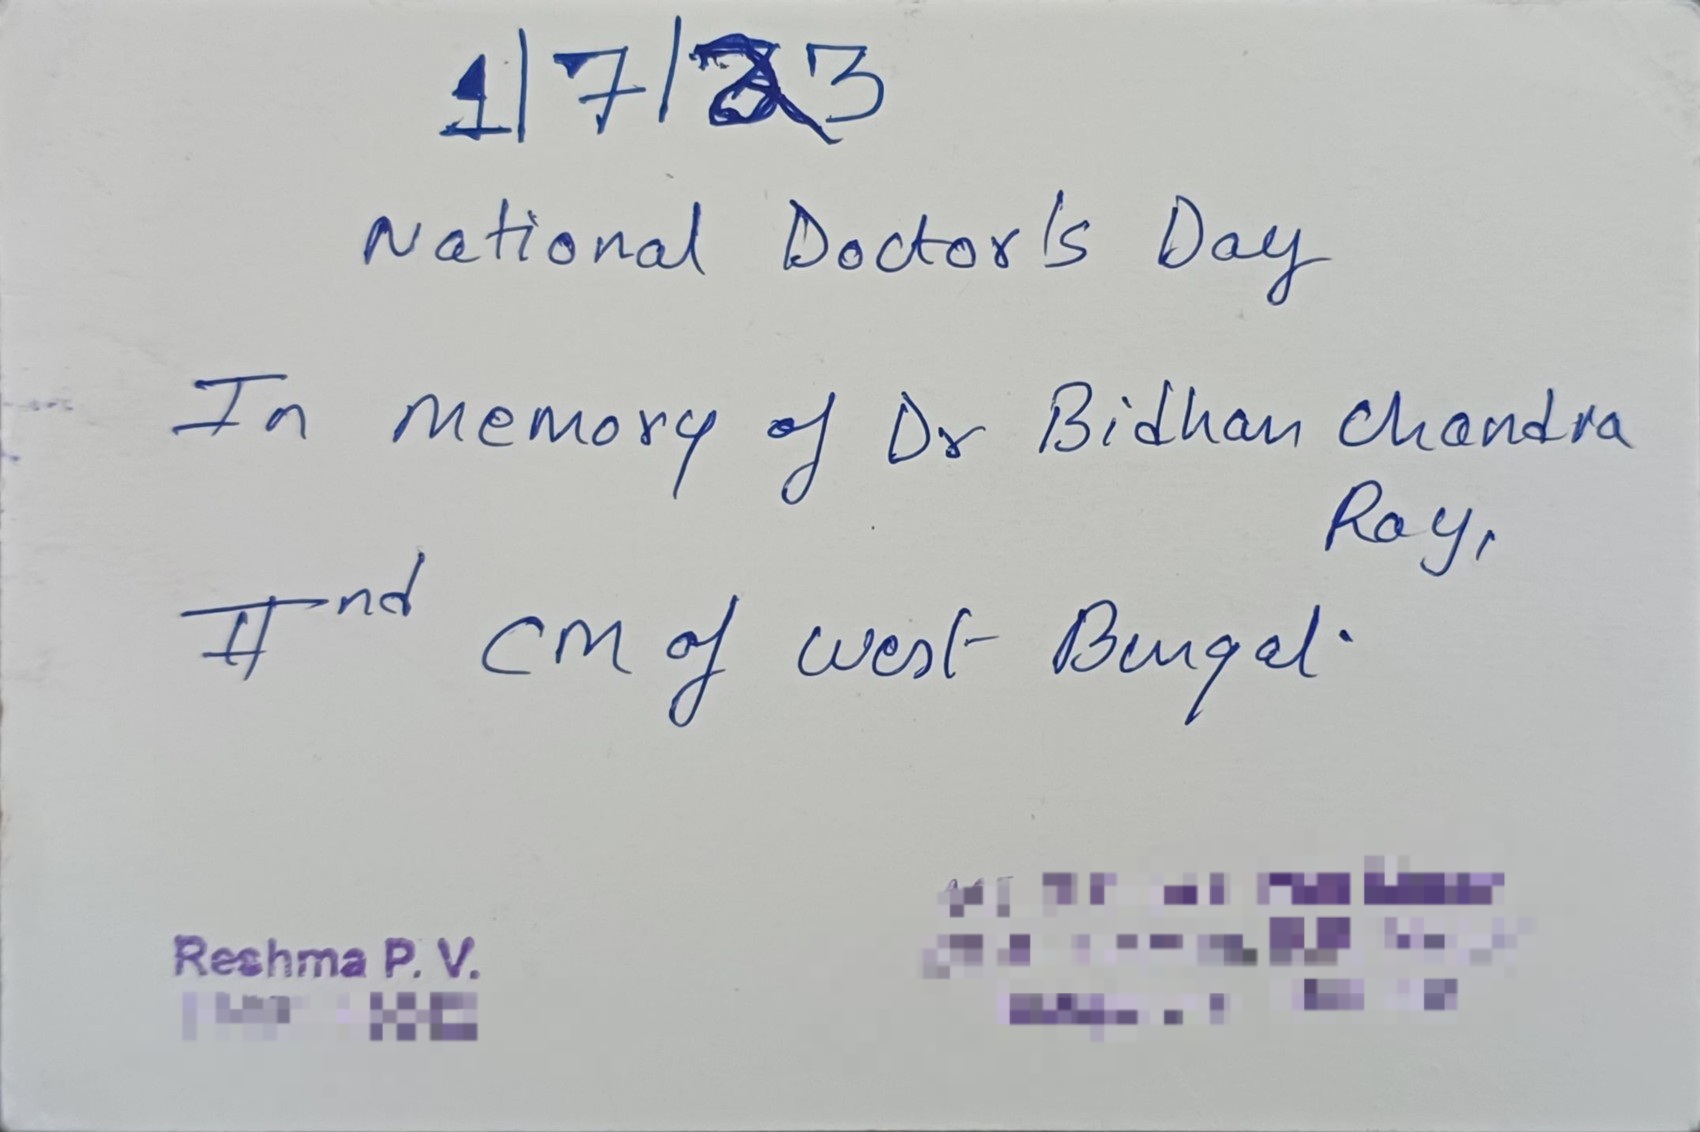 1/7/23
National Doctor's Day
In memory of Dr Bidhan Chandra
Roy,
IInd CM of west Bengal.
Reshma P. V.